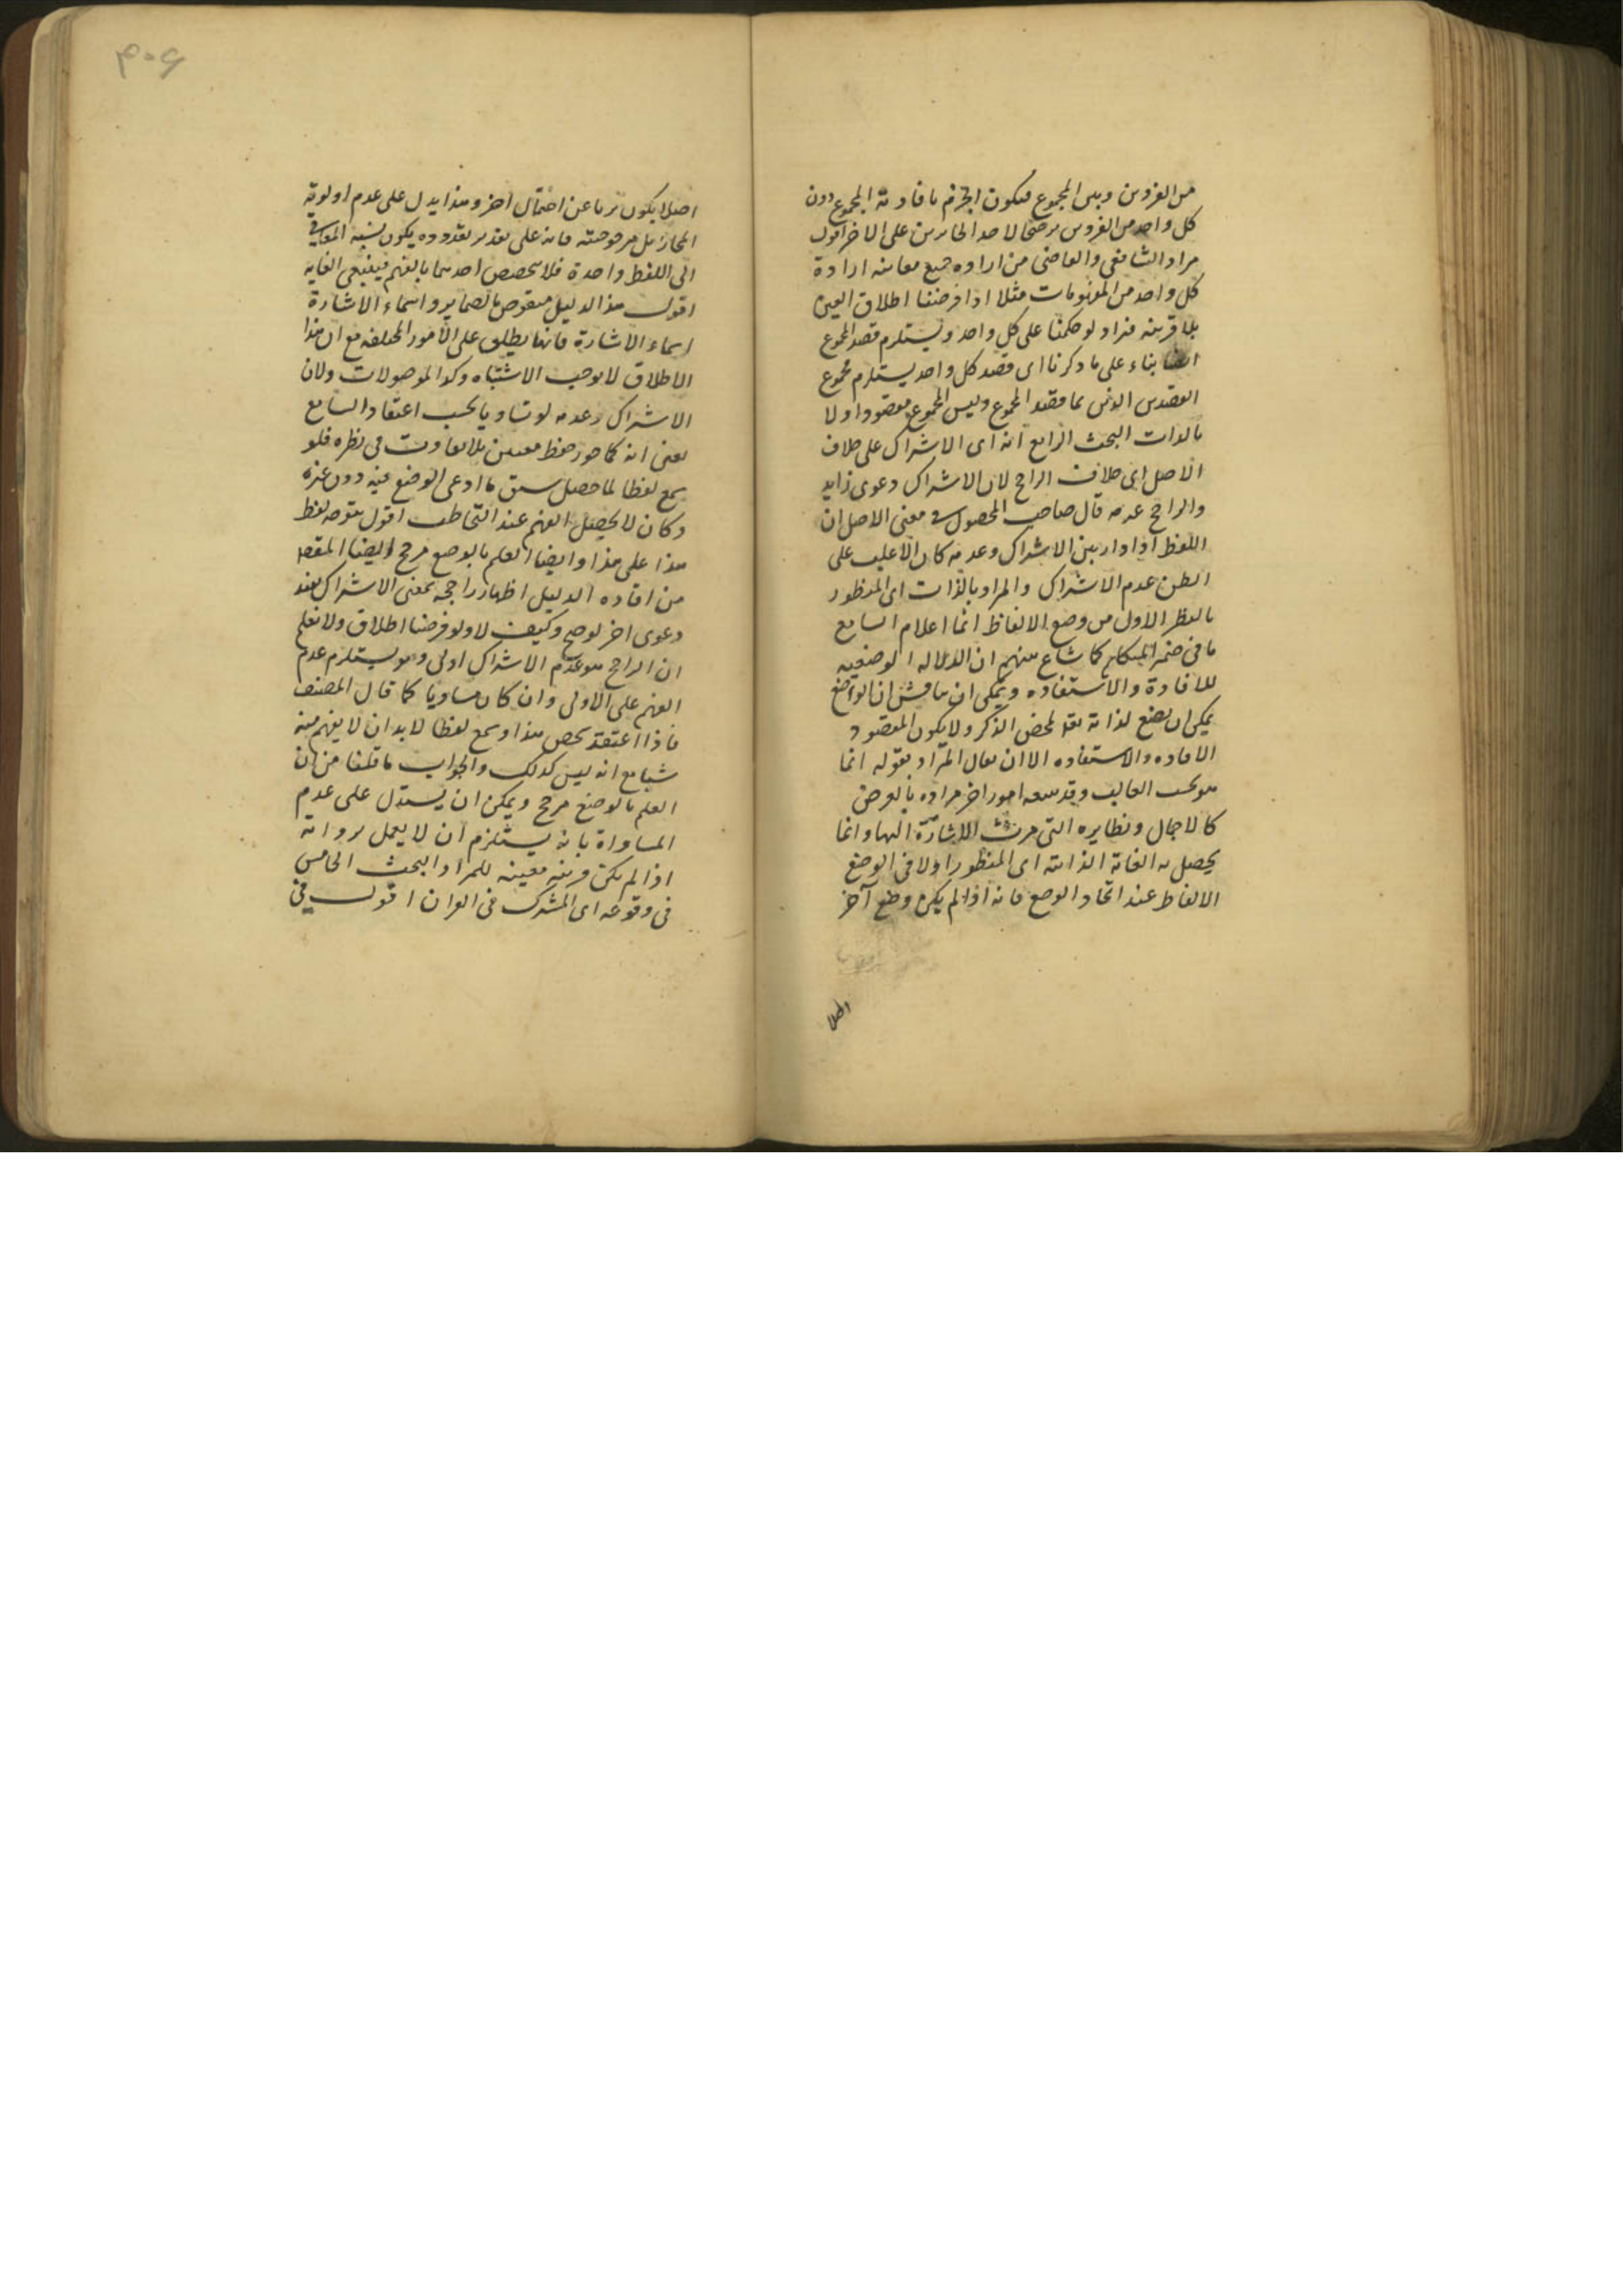 من الفردين وبين المجموع فيكون الجزم بافادته المجموع دون
كل واحد من الفردين ترجيحا لاحد الجائزين على الاخر اقول
مراد الشافعي والقاضي من اراده جميع معانيه ارادة
كل واحد من المفهومات مثلا اذا فرضنا اطلاق العين
بلا قرينه فنراد لو حكمنا على كل واحد ويستلزم قصد المجموع
ايضا بناء على ما ذكرنا اى قصد كل واحد يستلزم مجموع
القصدين الذين هما قصد المجموع وليس المجموع مقصودا ولا
بالذات البحث الرابع انه اى الاشتراك على خلاف
الاصل اى خلاف الراجح لان الاشتراك دعوى زايد
والراجح عدمه قال صاحب المحصول في معنى الاصل ان
اللفظ اذا دار بين الاشتراك وعدمه كان الاغلب على
الظن عدم الاشتراك والمراد بالذات اى المنظور
بالنظر الاول من وضع الالفاظ انما اعلام السامع
ما في ضمير المتكلم كما شاع منهم ان الدلاله الوضعيه
للافادة والاستفاده ويمكن ان يناقش ان الواضع
يمكن ان يضع لذاته لمحض الذكر ولا يكون المقصود
الافاده والاستفاده الا ان يقال المراد بقوله انما
هو بحسب الغالب وقد يتبعه امور اخر مراده بالعرض
كالاجمال ونظايره التى مرت الاشارة اليها وانما
يحصل به الغاية الذاتية اى المنظور اولا في الوضع
الالفاظ عند اتحاد الوضع فانه اذا لم يكن وضع آخر
اصلا
اصلا يكون برياء عن احتمال اخر وهذا يدل على عدم اولويه
المجاز بل مرجوحيته فانه على تقدير تعدده يكون نسبه المعاني
الى اللفظ واحدة فلا يتخصص احدهما بالفهم فينتفى الغايه
اقول هذا الدليل منقوض بالضماير واسماء الاشارة
اسماء الاشارة فانها يطلق على الامور المختلفه مع ان هذا
الاطلاق لا يوجب الاشتباه وكذا الموصولات ولان
الاشتراك وعدمه لو تساويا بحسب اعتقاد السامع
يعنى انه كما جوز حفظ معنيين بلا تفاوت في نظره فلو
سمع لفظا لما حصل سبق ما ادعى الوضع فيه دون غيره
وكان لا يحصل الفهم عند التخاطب اقول يتوجه لفظ
هذا على هذا وايضا العلم بالوضع مرجح ايضا المقصد
من افاده الدليل اظهار راجحه بمعنى الاشتراك بعد
دعوى اخر لوضح وكيف لا ولو فرضنا اطلاق ولا نعلم
ان الراجح هو عدم الاشتراك اولى وهو يستلزم عدم
الفهم على الاولى وان كان مساويا كما قال المصنف
فاذا اعتقد شخص هذا وسمع لفظا لا بد ان لا يفهم منه
شيئا مع انه ليس كذلك والجواب ما قلنا من ان
العلم بالوضع مرجح ويمكن ان يستدل على عدم
المساواة بانه يستلزم ان لا يعمل بروايه
اذا لم يكن قرينه معينه للمراد البحث الخامس
في وقوعه اى المشترك في القران اقول في